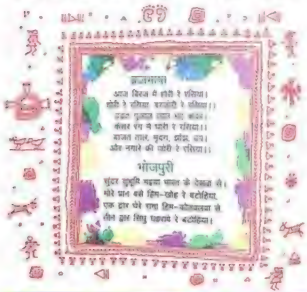 ब्रजभाषा
आज बिरज में होरी रे रसिया।
होरी रे रसिया बरजोरी रे रसिया।।
उड़त गुलाल लाल भए बादर
केसर रंग में घोरी रे रसिया।।
बाजत ताल, मृदंग, झाँझ, ढप।
और नगारे की जोरी रे रसिया।।
भोजपुरी
सुंदर सुभूमि भइया भारत के देसवा से।
मोरे प्रान बसे हिम-खोह रे बटोहिया,
एक द्वार घेरे रामा हिम-कोतवलवा से
तीन द्वार सिंधु घहरावे रे बटोहिया।